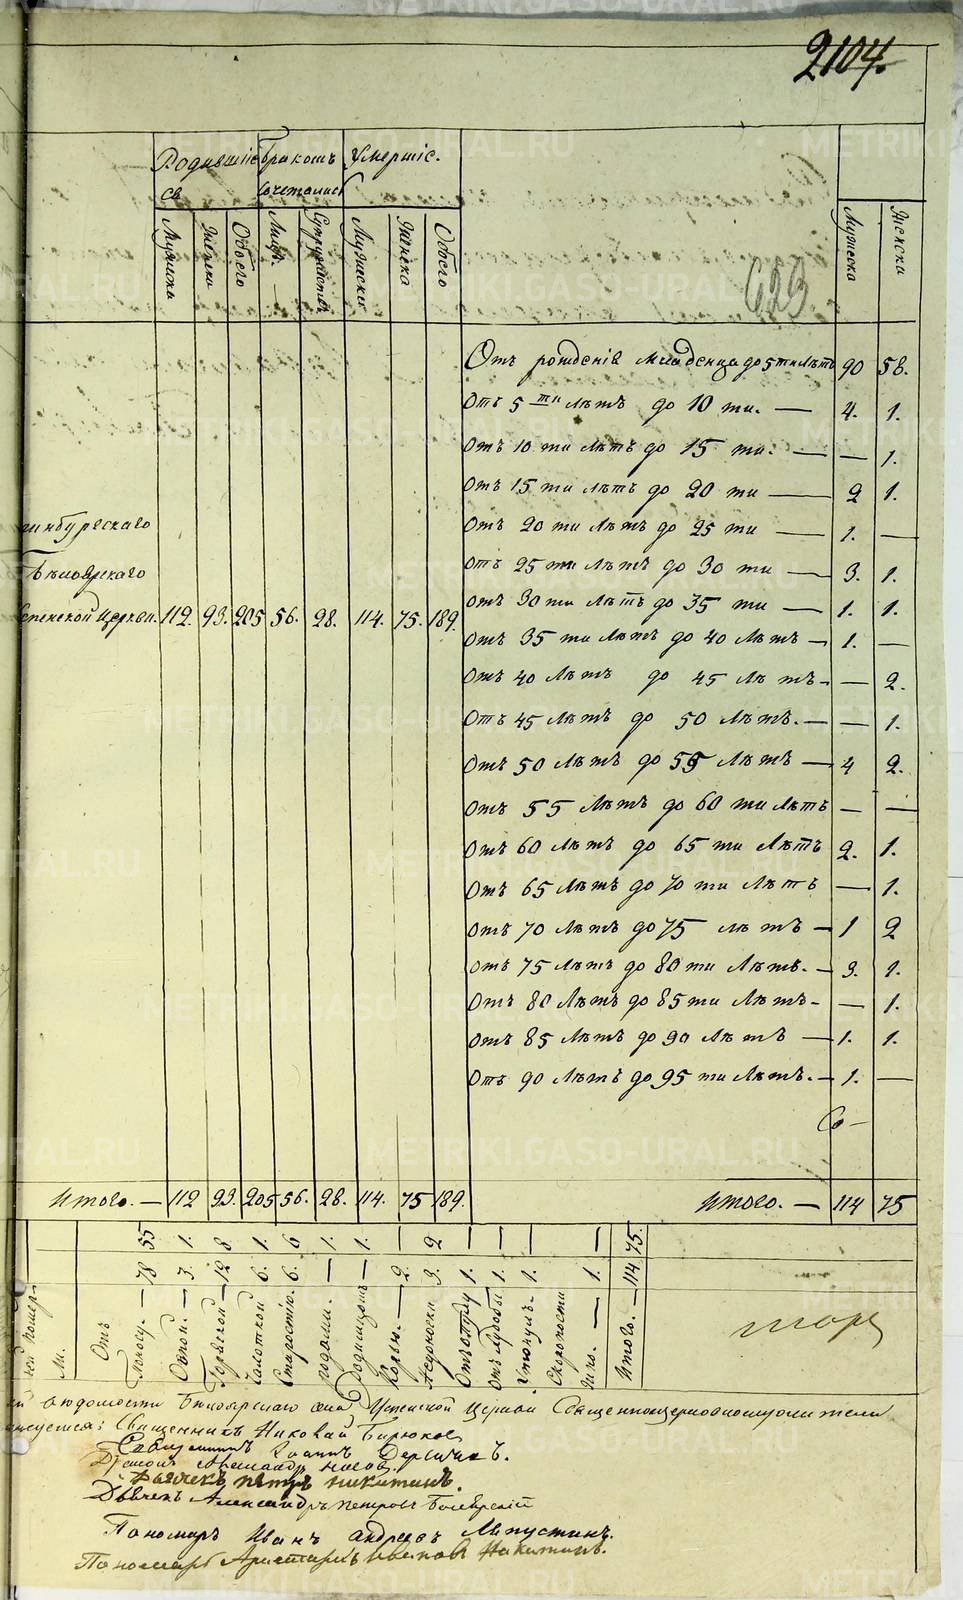 2104.
Родившіесѧ
Бракомъ сочетались
Умершіе.
Мужеска
Женска
Обоего
Лицъ.
Супружествъ
Мужеска
Женска
Обоего
Мужеска
Женска
623
Отъ рожденія младенца до 5 ти лѣтъ 90 58.
Отъ 5 ти лѣтъ до 10 ти. — 4. 1.
Отъ 10 ти лѣтъ до 15 ти. — — 1.
Отъ 15 ти лѣтъ до 20 ти — 2 1.
Отъ 20 ти лѣтъ до 25 ти — 1. —
Отъ 25 ти лѣтъ до 30 ти — 3. 1.
Отъ 30 ти лѣтъ до 35 ти — 1. 1.
Отъ 35 ти лѣтъ до 40 лѣтъ — 1. —
Отъ 40 лѣтъ до 45 лѣтъ — — 2.
Отъ 45 лѣтъ до 50 лѣтъ. — — 1.
Отъ 50 лѣтъ до 55 лѣтъ — 4 2.
Отъ 55 лѣтъ до 60 ти лѣтъ — —
Отъ 60 лѣтъ до 65 ти лѣтъ 2. 1.
Отъ 65 лѣтъ до 70 ти лѣтъ — 1.
Отъ 70 лѣтъ до 75 лѣтъ — 1 2
Отъ 75 лѣтъ до 80 ти лѣтъ. — 3. 1.
Отъ 80 лѣтъ до 85 ти лѣтъ — — 1.
Отъ 85 лѣтъ до 90 лѣтъ — 1. 1.
Отъ 90 лѣтъ до 95 ти лѣтъ. — 1. —
инбургскаго
Бѣлоярскаго
спенской Церкви. 112. 93. 205 56. 28. 114. 75. 189.
Итого. — 112 93. 205 56. 28. 114. 75 189.
Итого. — 114 75
Отъ
— 78 55
— 3. 1.
Горячкой — 12 8.
Чахоткой 6. 1.
Старостію. 6. 6
родами. — 1.
Родимцомъ — 1.
2. —
3. 2
1. —
1. —
Утонулъ. 1. —
Скоропости
жно. — 1. —
Итого. — 114 75.
Священникъ Николай Бирюков
Дьячекъ Петръ Никитинъ.
Дьячекъ Александръ Петровъ
Пономарь Иванъ Андреевъ Лапустинъ.
Пономарь Аристархъ Никитинъ.
METRIKI.GASO-URAL.RU